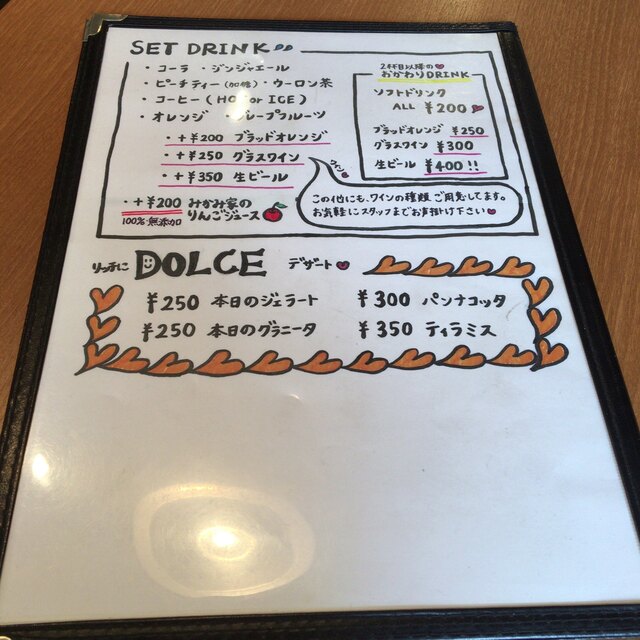 SET DRINK
・コーラ ・ジンジャエール
・ピーチティー(加糖)・ウーロン茶
・コーヒー(HOT or ICE)
・オレンジ ・グレープフルーツ
・+¥200 ブラッドオレンジ
・+¥250 グラスワイン
・+¥350 生ビール
・+¥200 みかみ家の
100%無添加 りんごジュース
2杯目以降の
おかわりDRINK
ソフトドリンク
ALL ¥200
ブラッドオレンジ ¥250
グラスワイン ¥300
生ビール ¥400!!
この他にも、ワインの種類ご用意してます。
お気軽にスタッフまでお声掛け下さい
リッチに DOLCE デザート
¥250 本日のジェラート
¥250 本日のグラニータ
¥300 パンナコッタ
¥350 ティラミス